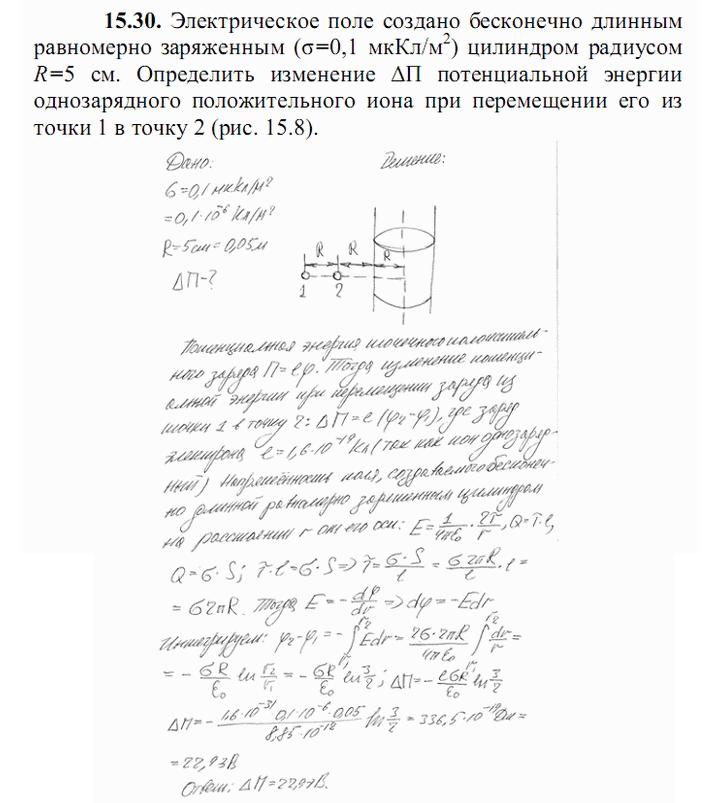 15.30. Электрическое поле создано бесконечно длинным
равномерно заряженным (σ=0,1 мкКл/м²) цилиндром радиусом
R=5 см. Определить изменение ΔП потенциальной энергии
однозарядного положительного иона при перемещении его из
точки 1 в точку 2 (рис. 15.8).
Дано: Решение:
σ=0,1 мкКл/м²
=0,1·10⁻⁶ Кл/м²
R=5см=0,05м
ΔП-?
R R R
1 2
Потенциальная энергия точечного положитель-
ного заряда П=eφ. Тогда изменение потенци-
альной энергии при перемещении заряда из
точки 1 в точку 2: ΔП=e(φ₂-φ₁), где заряд
электрона e=1,6·10⁻¹⁹Кл (так как ион однозаряд-
ный) Напряжённость поля, создаваемого бесконеч-
но длинной равномерно заряженным цилиндром
на расстоянии r от его оси: E=1/4πε₀·2τ/r, Q=τ·l,
Q=σ·S; τ·l=σ·S=>τ=σ·S/l=σ2πR/l·l=
=σ2πR. Тогда E=-dφ/dr=>dφ=-Edr
Интегрируем: φ₂-φ₁=-∫Edr=2σ·2πR/4πε₀ ∫dr/r=
=-σR/ε₀ ln r₂/r₁=-σR/ε₀ ln 3/2; ΔП=-eσR/ε₀ ln 3/2
ΔП=-1,6·10⁻³¹·0,1·10⁻⁶·0,05/8,85·10⁻¹² ln 3/2=336,5·10⁻¹⁹Дж=
=22,93В
Ответ: ΔП=22,97В.